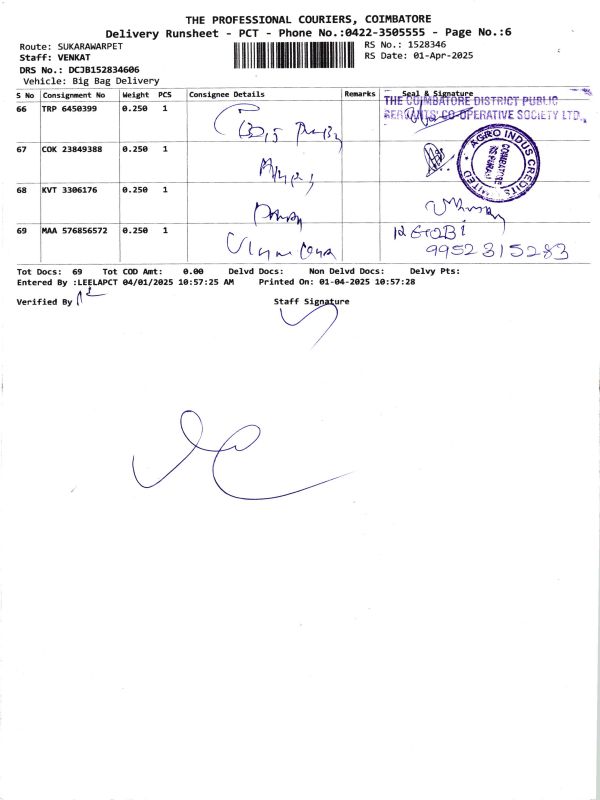 THE PROFESSIONAL COURIERS, COIMBATORE
Delivery Runsheet - PCT - Phone No.:0422-3505555 - Page No.:6
Route: SUKARAWARPET
RS No.: 1528346
Staff: VENKAT
RS Date: 01-Apr-2025
DRS No.: DCJB152834606
Vehicle: Big Bag Delivery
S No Consignment No Weight PCS Consignee Details Remarks Seal & Signature
THE COIMBATORE DISTRICT PUBLIC
SERVANTS' CO-OPERATIVE SOCIETY LTD.,
66 TRP 6450399 0.250 1
67 COK 23849388 0.250 1
AGRO INDUS CREDITS LIMITED
COIMBATORE
RS PURAM
68 KVT 3306176 0.250 1
69 MAA 576856572 0.250 1
GOBI
9952315283
Tot Docs: 69 Tot COD Amt: 0.00 Delvd Docs: Non Delvd Docs: Delvy Pts:
Entered By :LEELAPCT 04/01/2025 10:57:25 AM Printed On: 01-04-2025 10:57:28
Verified By
Staff Signature